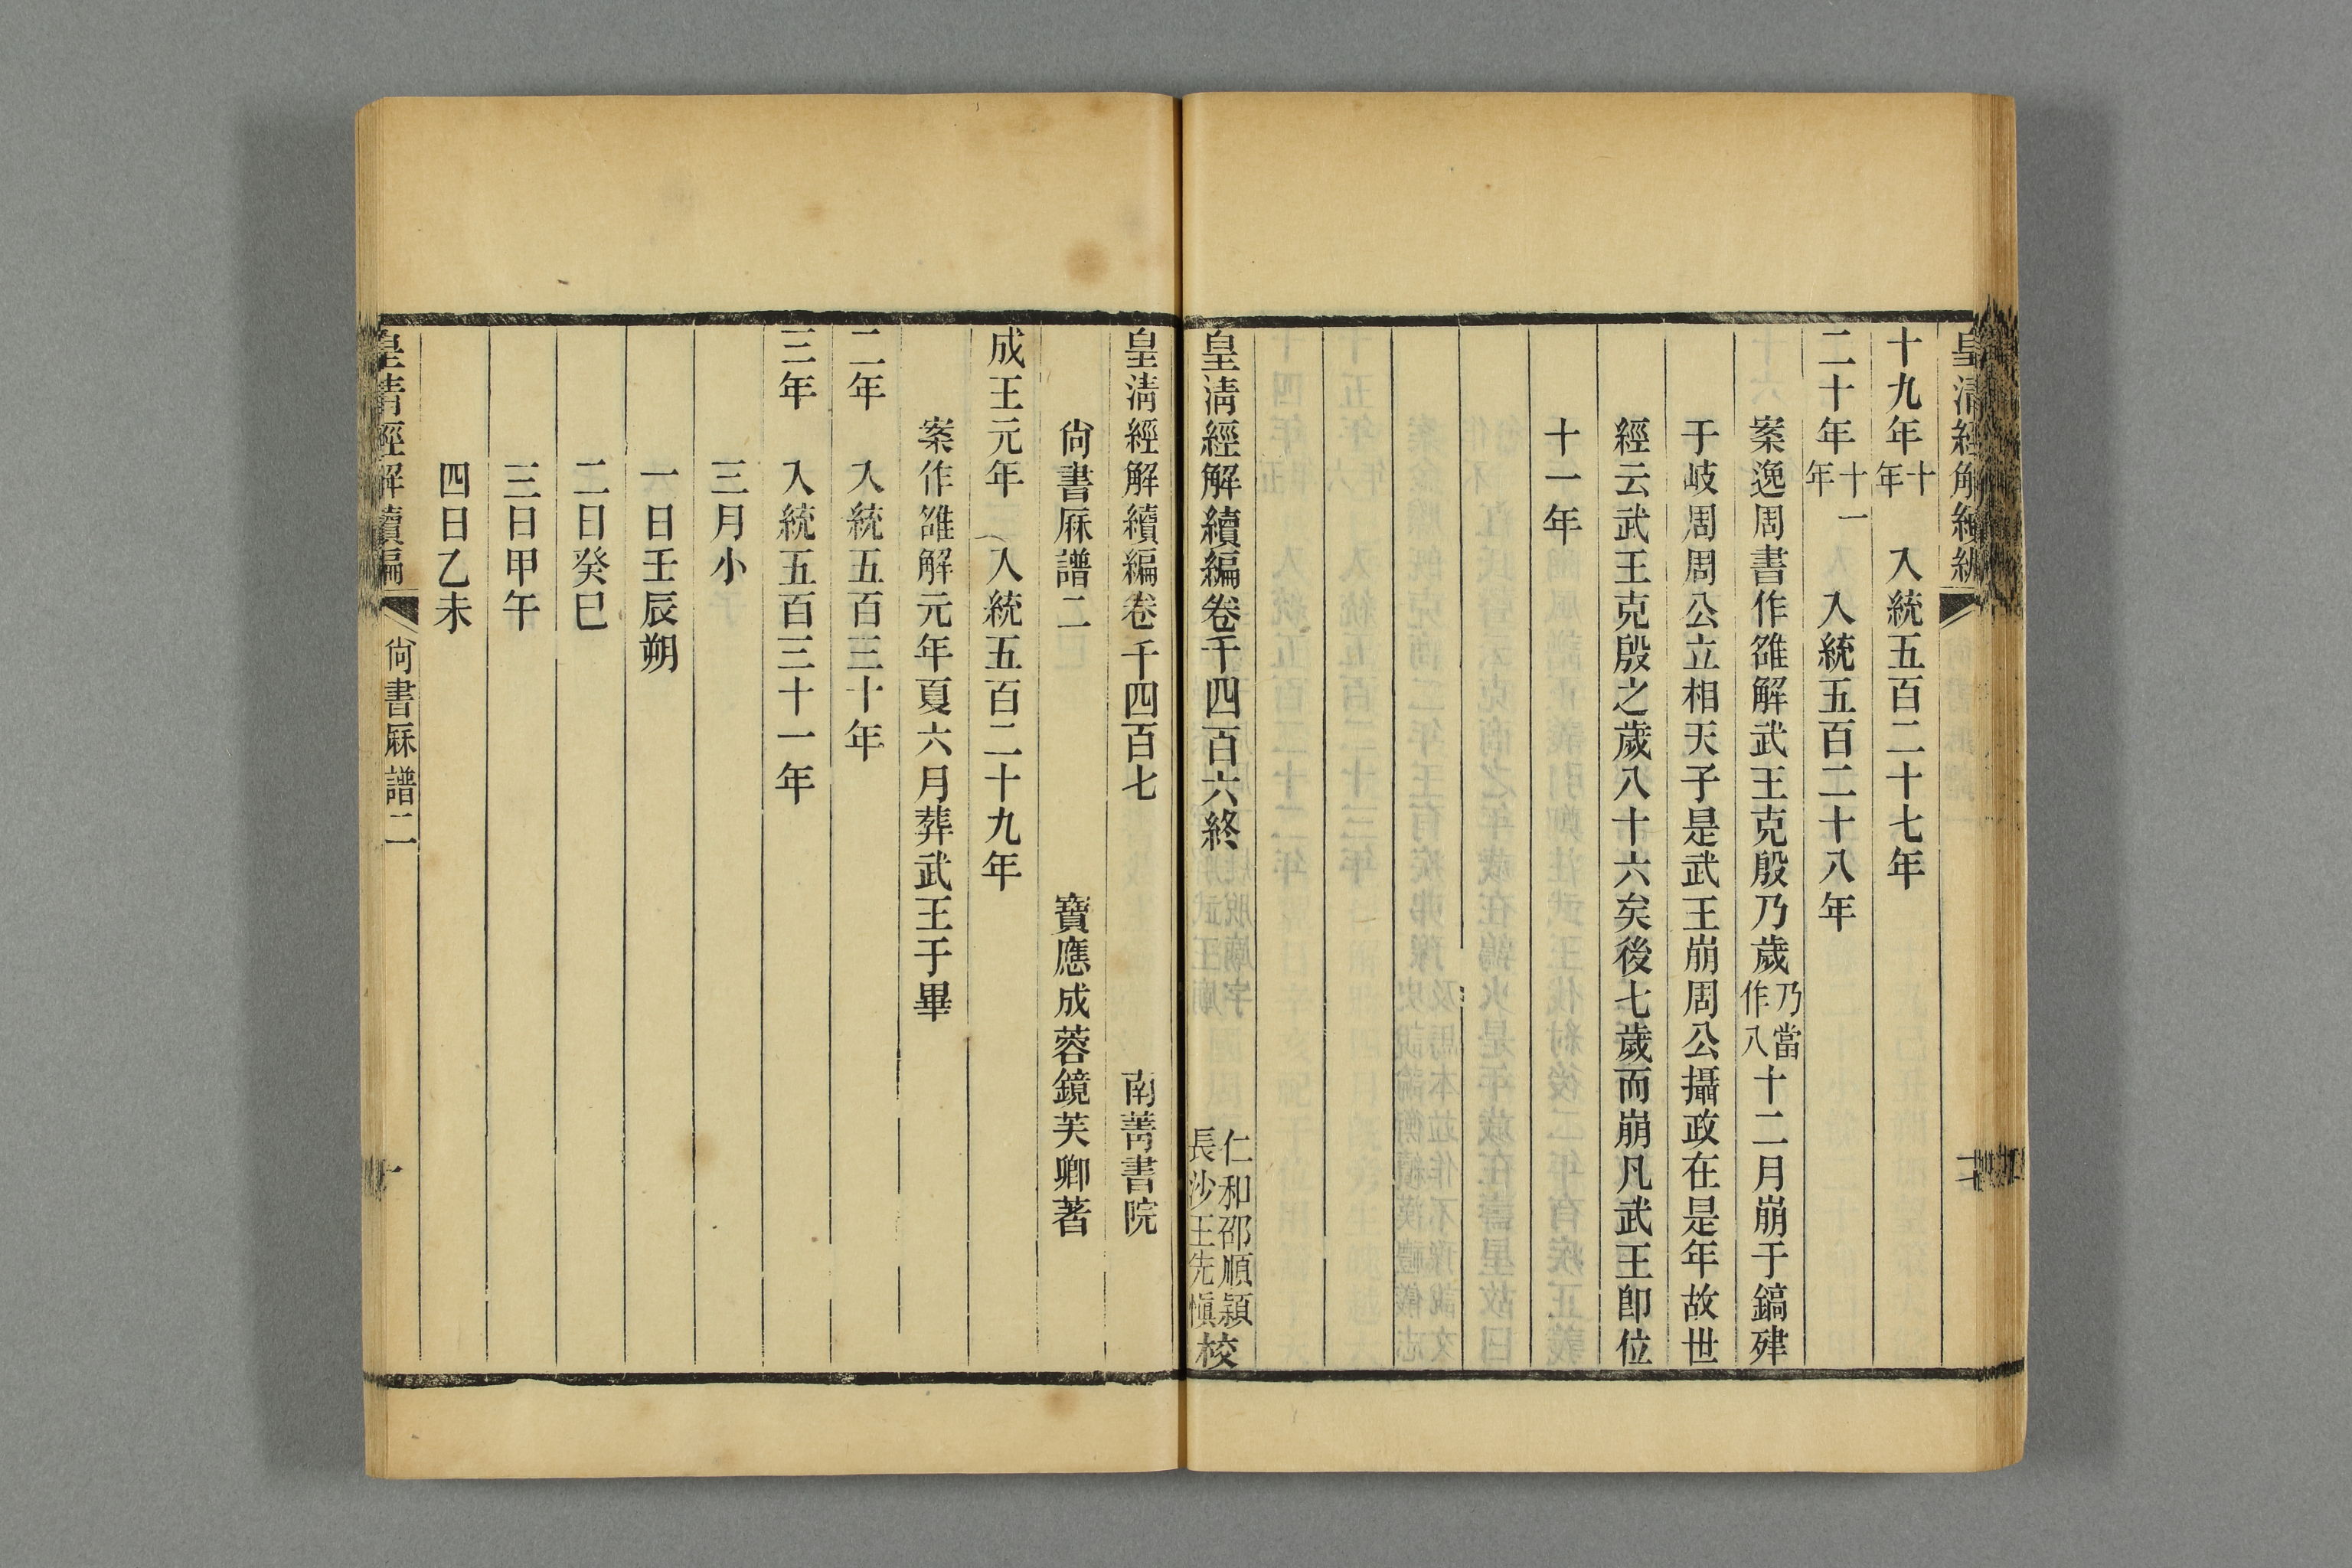 皇清經解續編
十九年十年 入統五百二十七年
二十年十一年 入統五百二十八年
案逸周書作雒解武王克殷乃歲乃當作八十二月崩于鎬肂
于岐周周公立相天子是武王崩周公攝政在是年故世
經云武王克殷之歲八十六矣後七歲而崩凡武王卽位
十一年
皇淸經解續編卷千四百六終
仁和邵順潁
長沙王先愼
校
皇淸經解續編卷千四百七 南菁書院
尙書厤譜二 寶應成蓉鏡芙卿著
成王元年 入統五百二十九年
案作雒解元年夏六月葬武王于畢
二年 入統五百三十年
三年 入統五百三十一年
三月小
一日壬辰朔
二日癸巳
三日甲午
四日乙未
皇清經解續編 尙書厤譜二